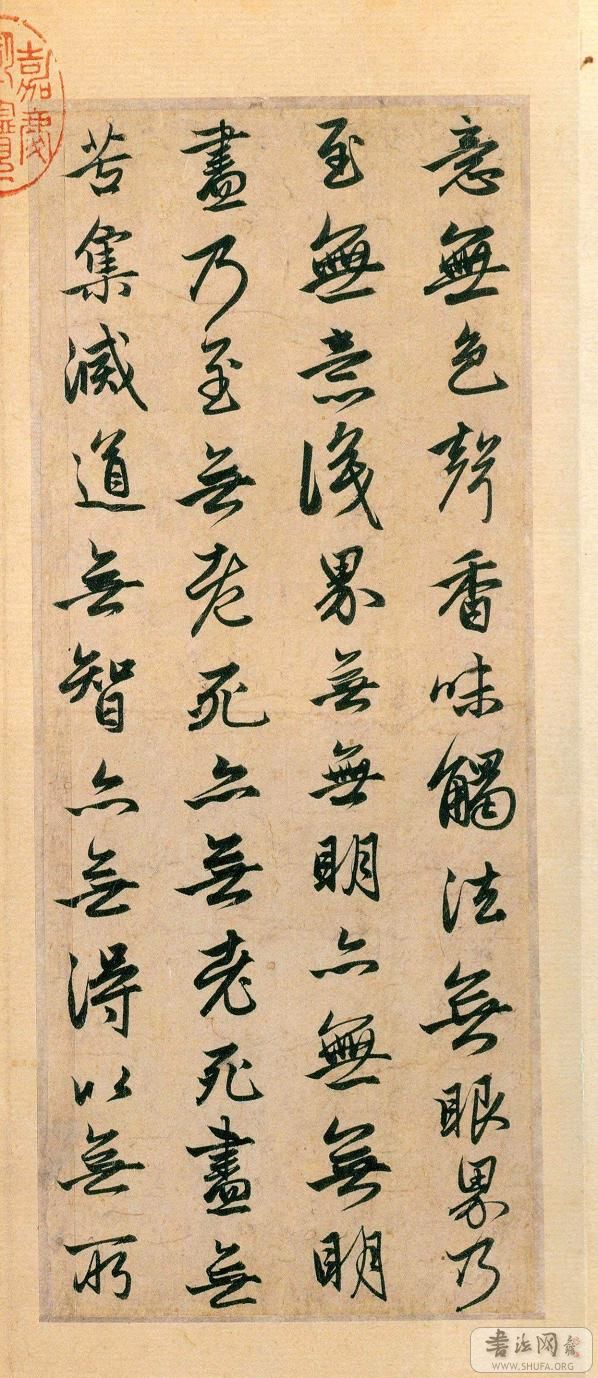 意無色聲香味觸法無眼界乃
至無意識界無無明亦無無明
盡乃至無老死亦無老死盡無
苦集滅道無智亦無得以無所
嘉慶
書法网
WWW.SHUFA.ORG